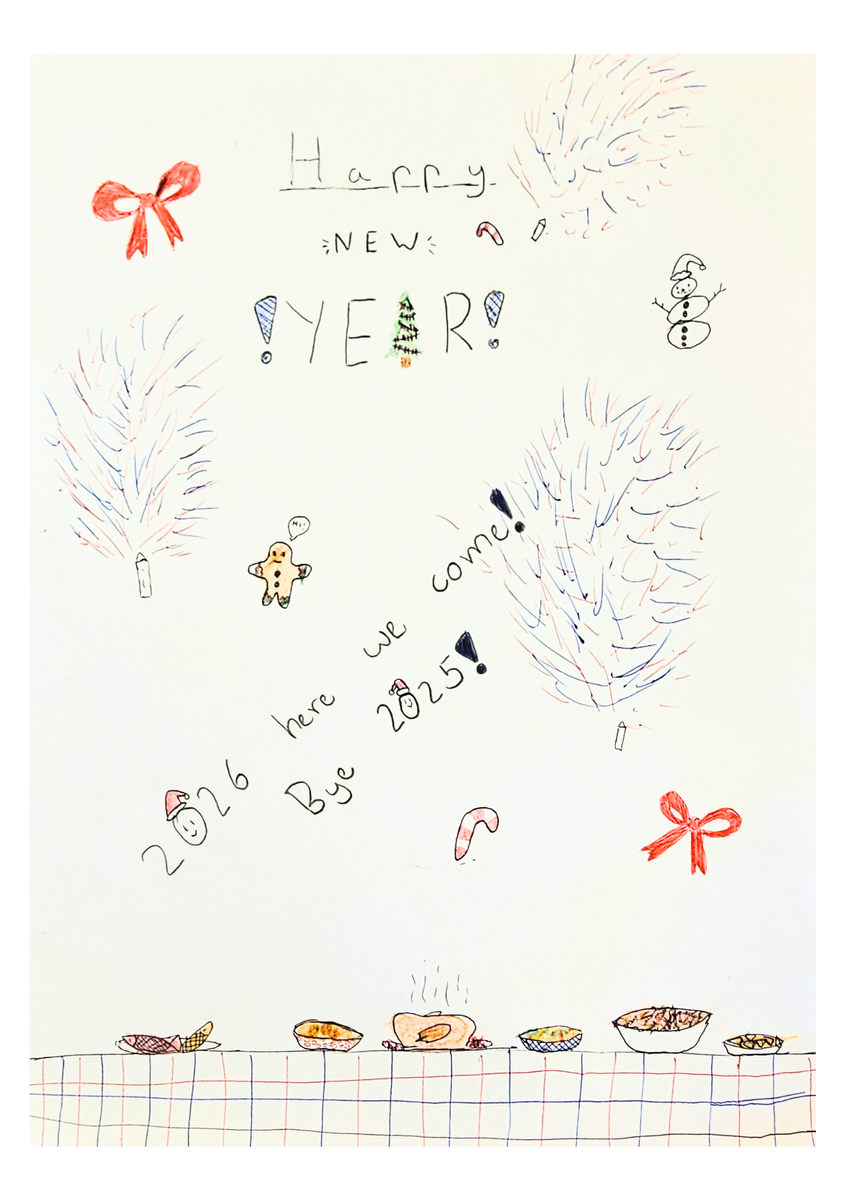 Happy
NEW
!YEAR!
HI!
2026 here we come!
Bye 2025!